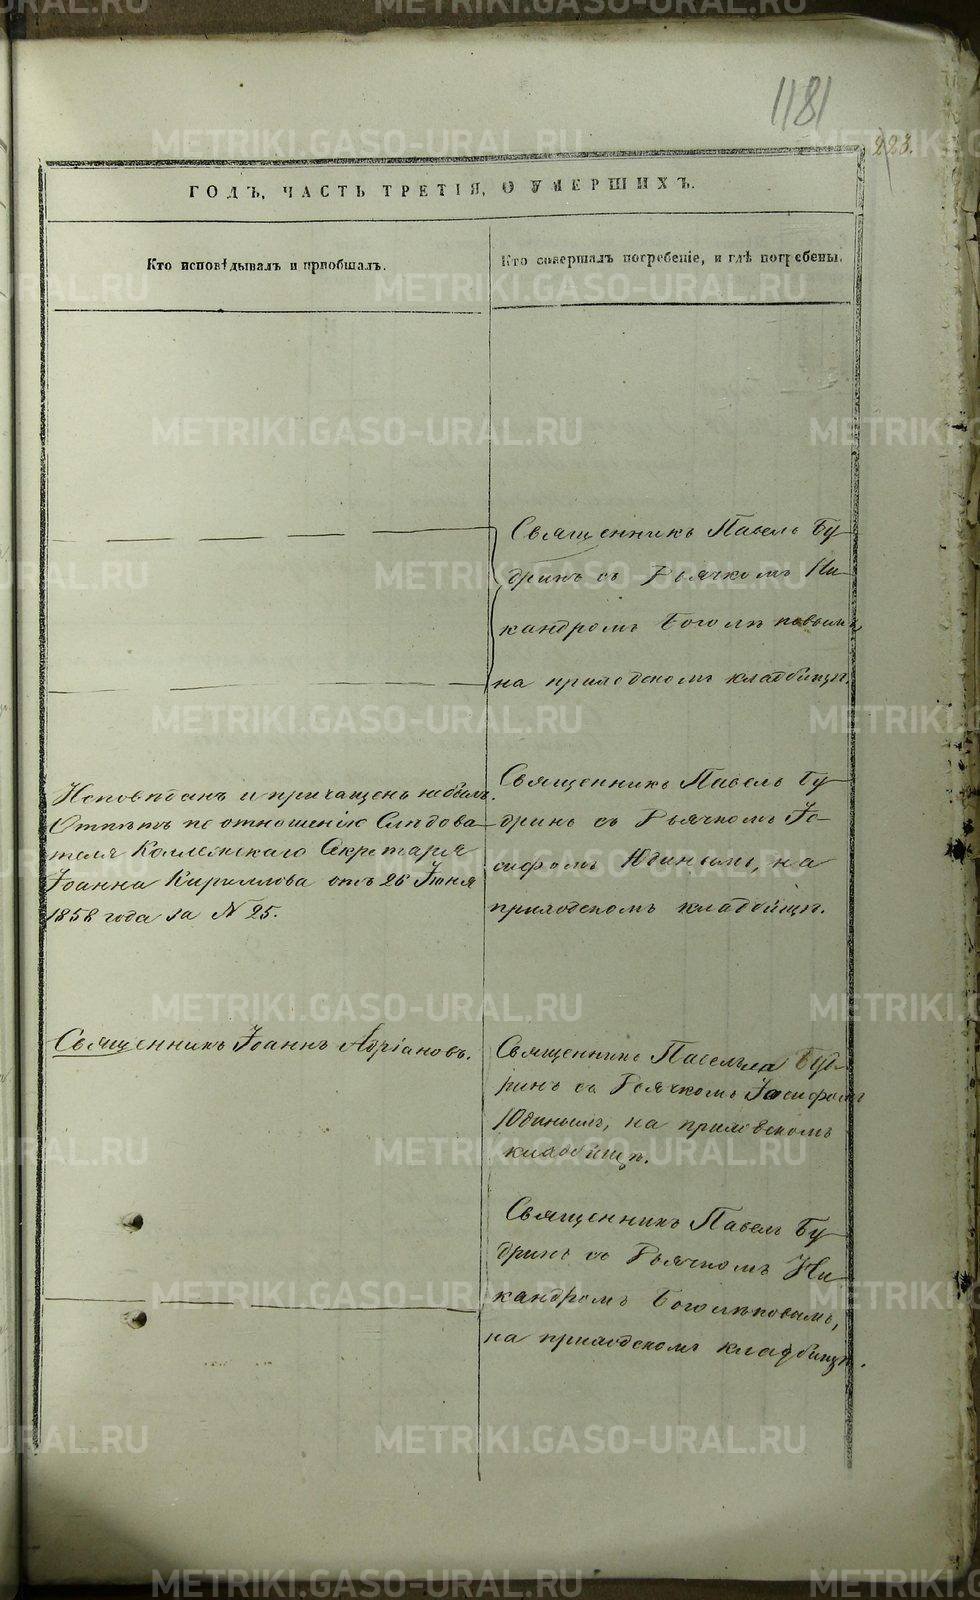 1181
223.
ГОДЪ, ЧАСТЬ ТРЕТІЯ, О УМЕРШИХЪ.
Кто исповѣдывалъ и пріобщалъ.
Кто совершалъ погребеніе, и гдѣ погребены.
Священникъ Павелъ Бу-
дринъ съ Дьячкомъ Ни-
кандромъ Боголѣповымъ,
на приходскомъ кладбищѣ.
Исповѣданъ и причащенъ небылъ.
Отпѣтъ по отношенію Слѣдова-
теля Коллежскаго Секретаря
Іоанна Кириллова отъ 26 Іюня
1858 года за № 25.
Священникъ Павелъ Бу-
дринъ съ Дьячкомъ Іо-
сифомъ Юдинымъ, на
приходскомъ кладбищѣ.
Священникъ Іоаннъ Адріановъ.
Священникъ Павелъ Буд-
ринъ съ Дьячкомъ Іосифомъ
Юдинымъ, на приходскомъ
кладбищѣ.
Священникъ Павелъ Бу-
дринъ съ Дьячкомъ Ни-
кандромъ Боголѣповымъ,
на приходскомъ кладбищѣ.
METRIKI.GASO-URAL.RU